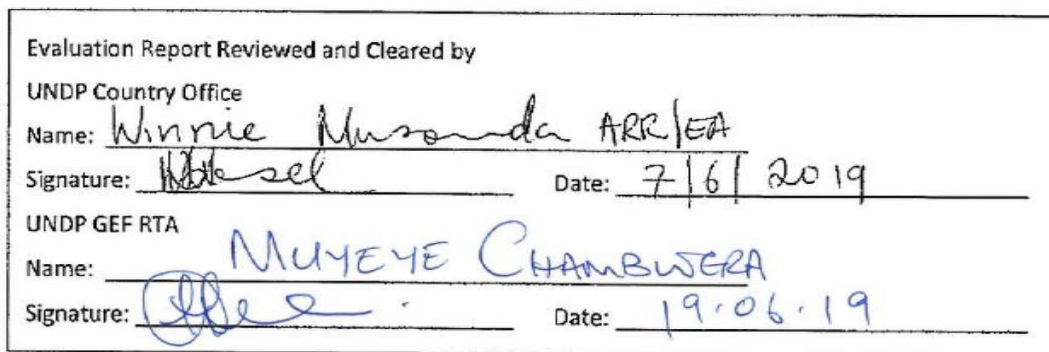 Evaluation Report Reviewed and Cleared by
UNDP Country Office
Name: Winnie Musonda ARR/EA
Signature: Date: 7/6/2019
UNDP GEF RTA
Name: MUYEYE CHAMBWERA
Signature: Date: 19.06.19